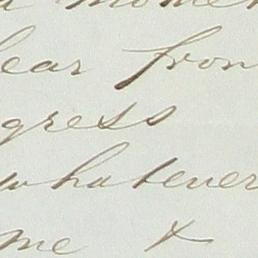 a momen
lear from
gress
whatever
me &